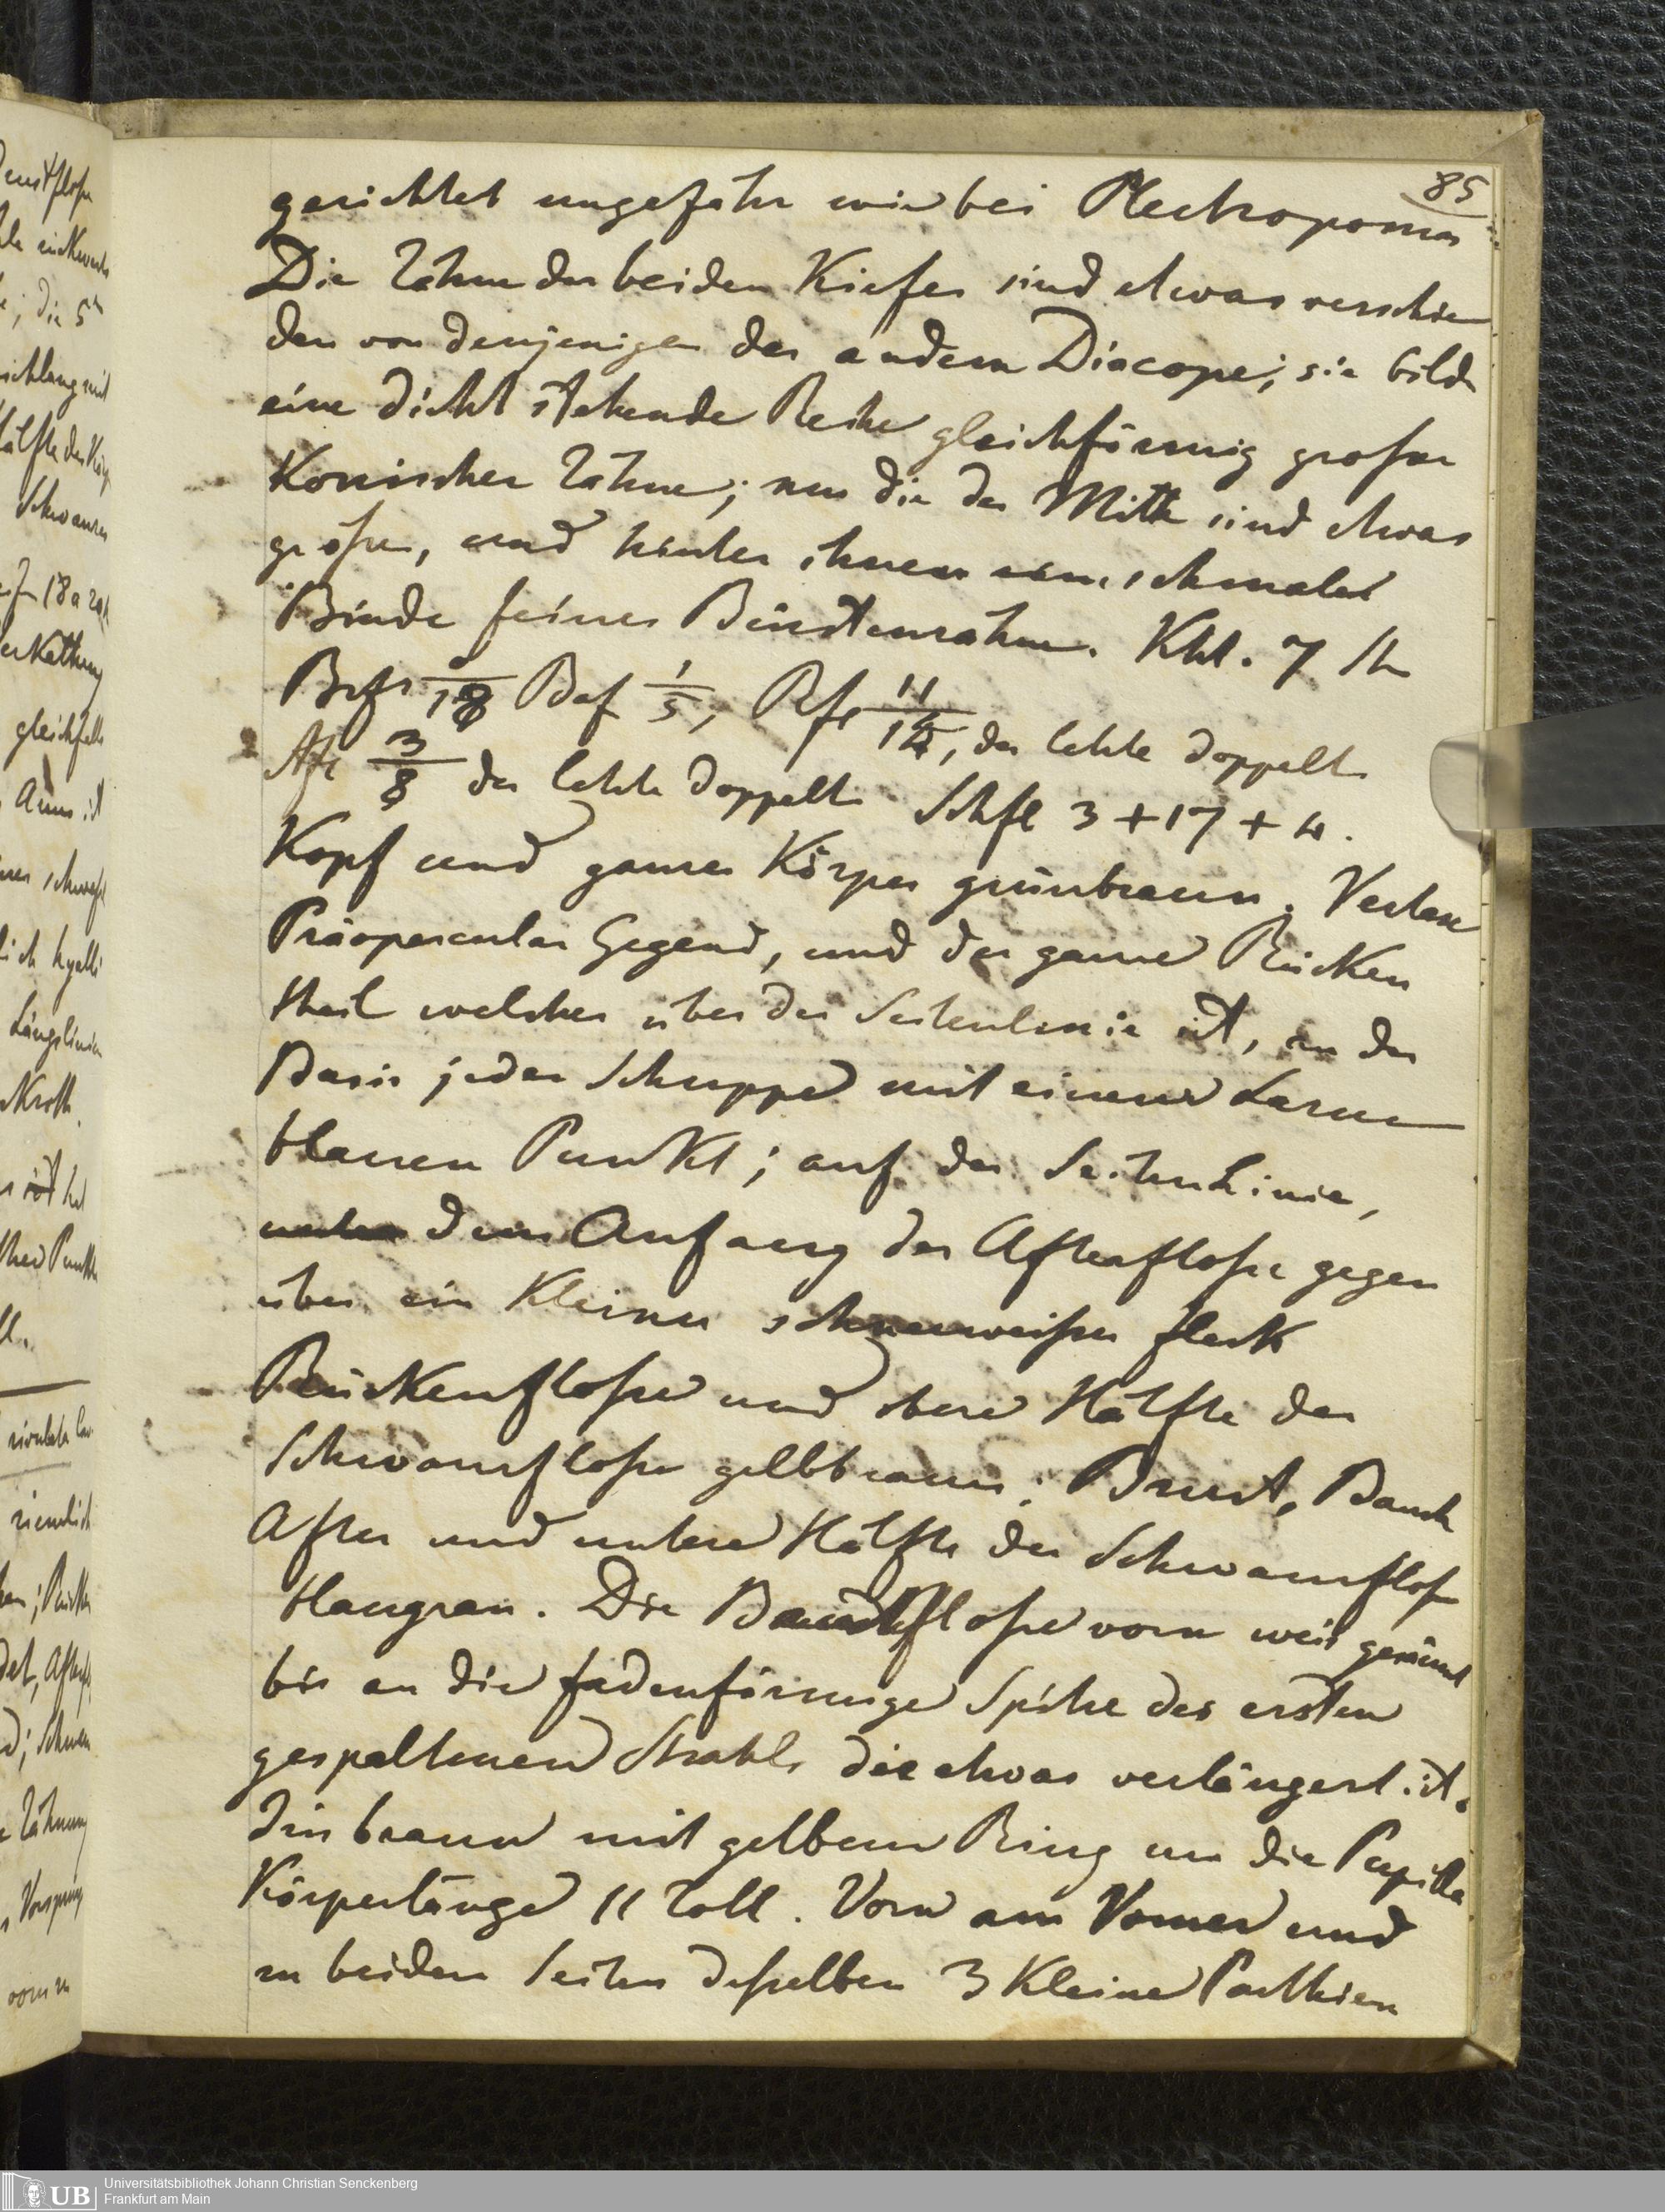 85
gerichtet ungefahr wie bei Plectropoma
Die Zähne der beiden Kiefer sind etwas verschie
den von denjenigen der andern Diacope; sie bilden
eine dicht stehende Reihe gleichförmig grosser
Konischer Zähne; nur die der Mitte sind etwas
grösser, und hinter ihnen eine schmale
Binde feiner Bürstenzähne. Kht. 7 Str
Brfl /18 Bafl 1/5, Rfl 11/14, der letzte doppelt
Afl 3/8 der letzte doppelt Schfl 3 + 17 + 4.
Kopf und ganzer Körper grünbraun.
Präopercular Gegend, und der ganze Rücken
theil welcher über der Seitenlinie ist, an der
Basis jeder Schuppe mit einem Lasur
blauen Punkt; auf der Seiten Linie,
dem Anfang der Afterflosse gegen
über ein Kleiner schneeweisser Fleck
Rückenflosse und obere Hälfte der
Schwanzflosse gelbbraun; Brust, Bauch
After und untere Hälfte der Schwanzfloss
blaugrau. Die Bauchflosse vorn weis gesäumt
bis an die fadenförmige Spitze des ersten
gespaltenen Strahls die etwas verlängert ist.
Iris braun mit gelbem Ring um die Pupille
Körperlänge 11 Zoll. Vorn am Vomer und
zu beiden Seiten desselben 3 Kleine Parthien
Universitätsbibliothek Johann Christian Senckenberg
Frankfurt am Main
UB